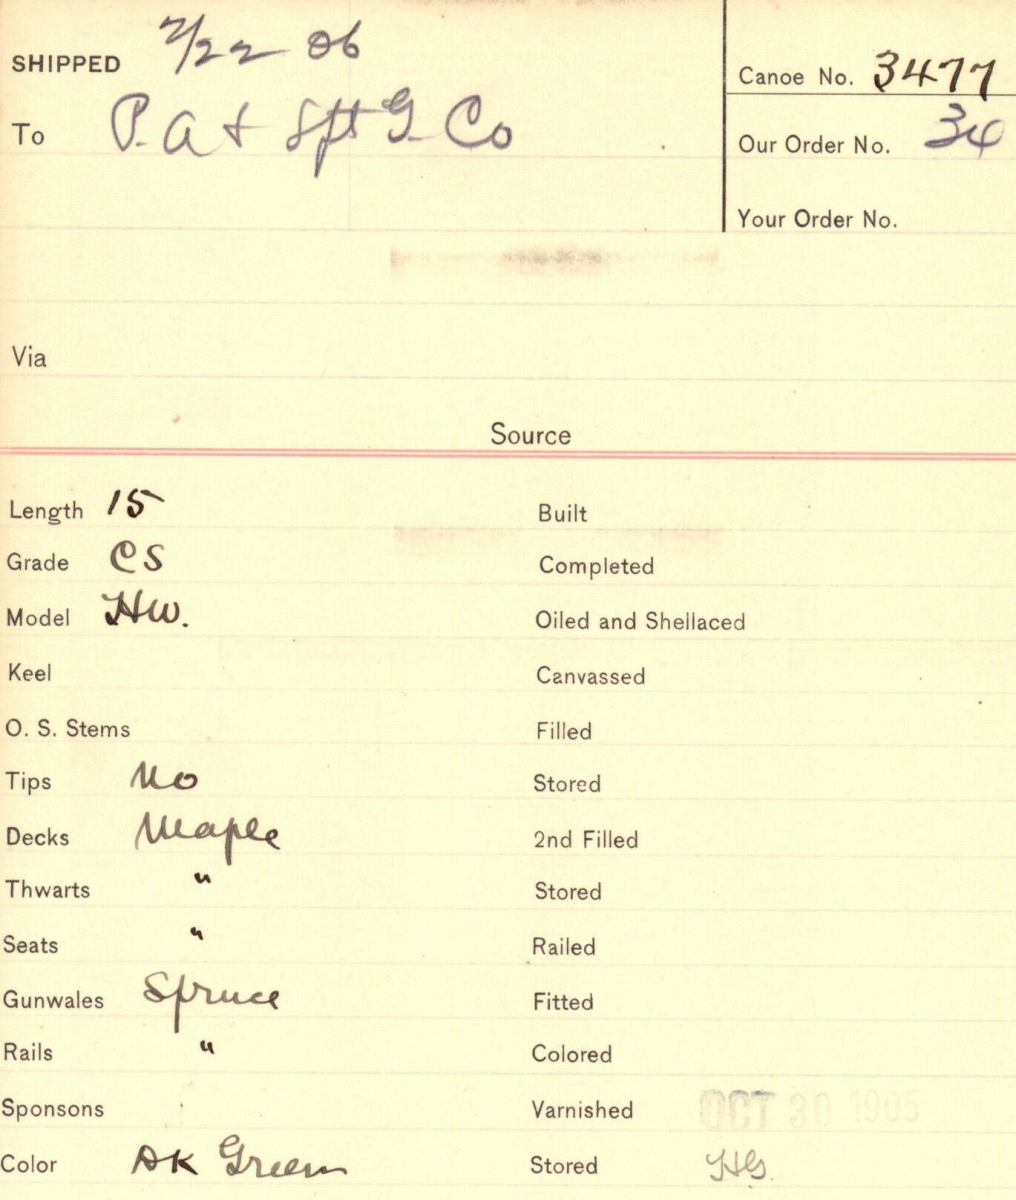 SHIPPED 2/22 06
To P. A & Spt G. Co
Canoe No. 3477
Our Order No. 34
Your Order No.
Via
Source
Length 15
Built
Grade CS
Completed
Model HW.
Oiled and Shellaced
Keel
Canvassed
O. S. Stems
Filled
Tips No
Stored
Decks Maple
2nd Filled
Thwarts "
Stored
Seats "
Railed
Gunwales Spruce
Fitted
Rails "
Colored
Sponsons
Varnished OCT 30 1905
Color DK Green
Stored